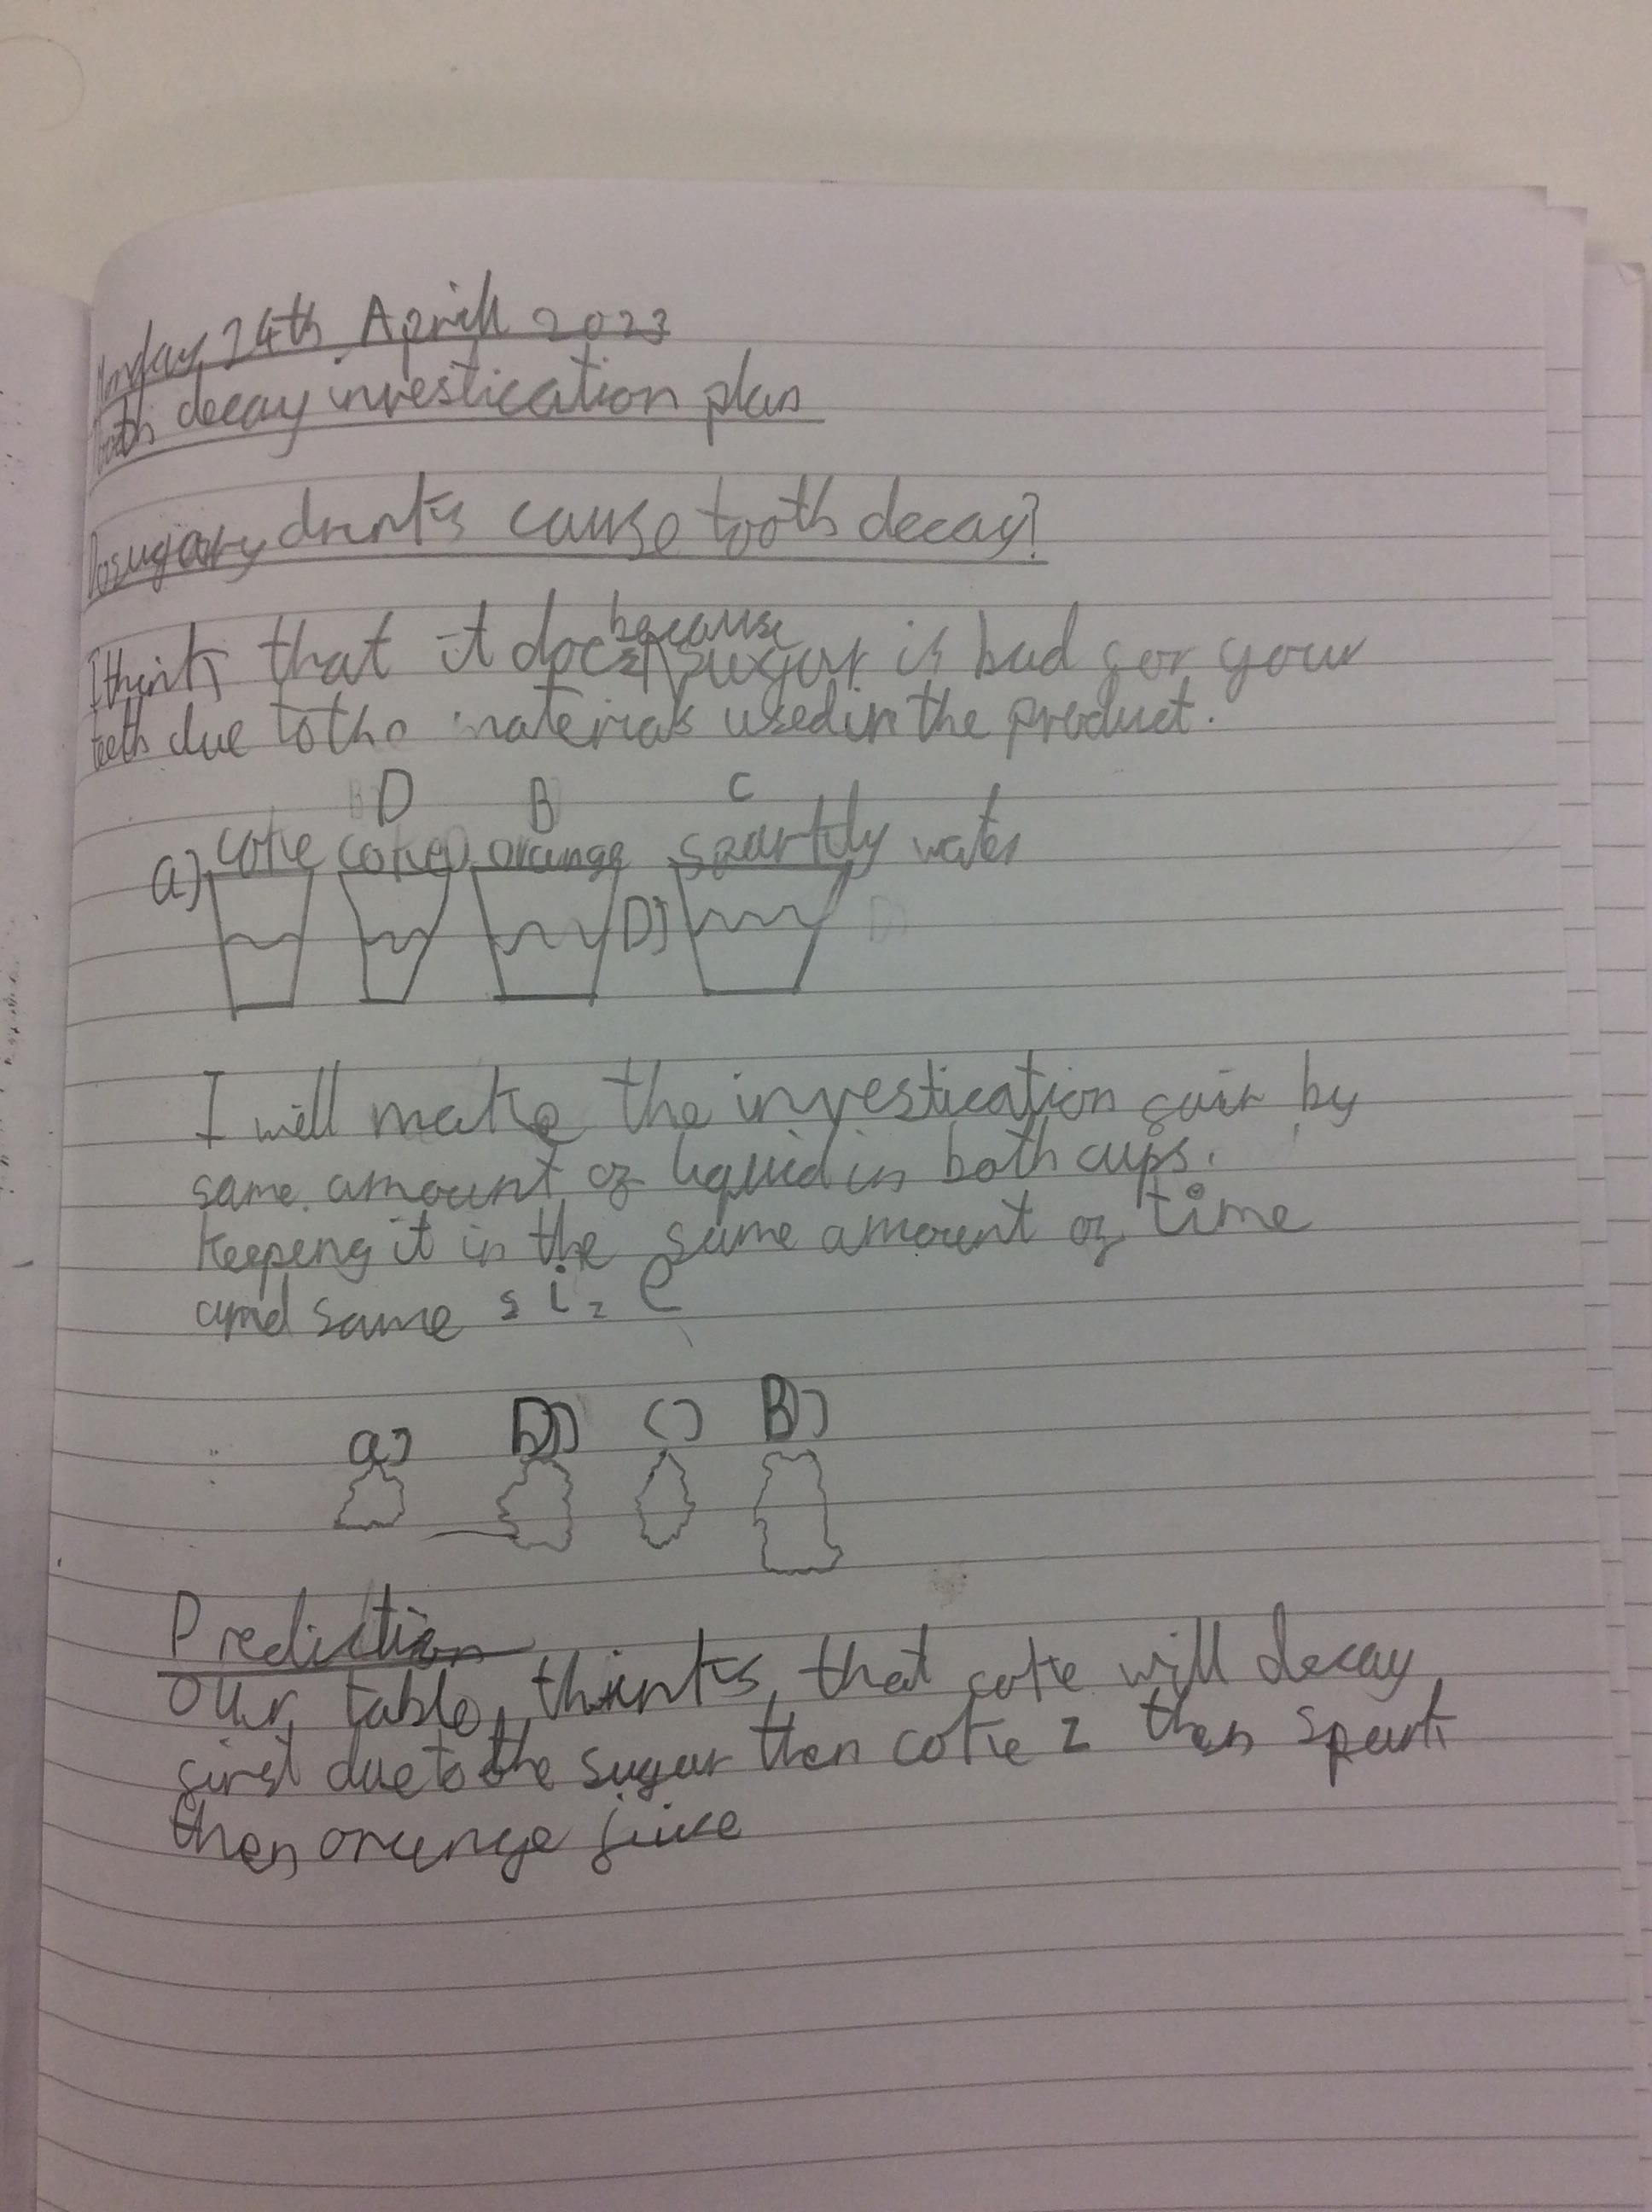 Monday 24th Aprill 2023
Tooth decay investication plan
Do sugary drinks cause tooth decay?
because
I think that it does sugar is bad for your
teeth due to the materials used in the product.
D B C
a) coke coke0 orange sparkly water
D)
I will make the investication fair by
same amount of liquid in both cups.
keepeng it in the same amount of time
and same size
a) D) C) B)
Prediction
Our table, thinks, that coke will decay
first due to the sugar then coke z then spark
then orange juice